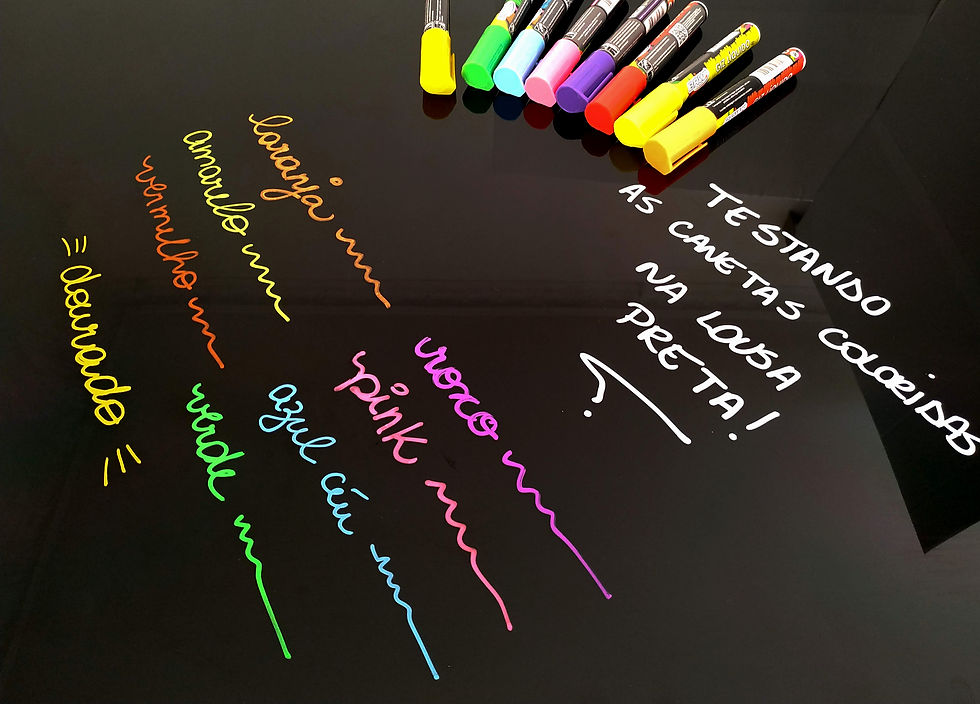 TESTANDO
AS CANETAS COLORIDAS
NA LOUSA
PRETA!
laranja
amarelo
vermelho
dourado
roxo
pink
azul céu
verde